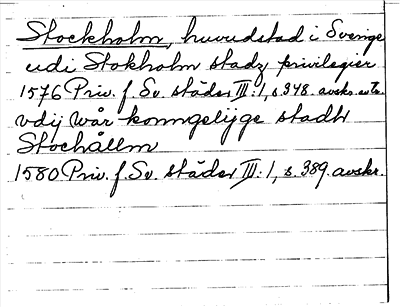 Stockholm, huvudstad i Sverige
udi Stokholm stadz privilegier
1576 Priv. f. Sv. städer III:1, s 348. avskr.
vdij wår konngelijge stadh
Stochållm
1580 Priv. f. Sv. städer III:1, s. 389. avskr.